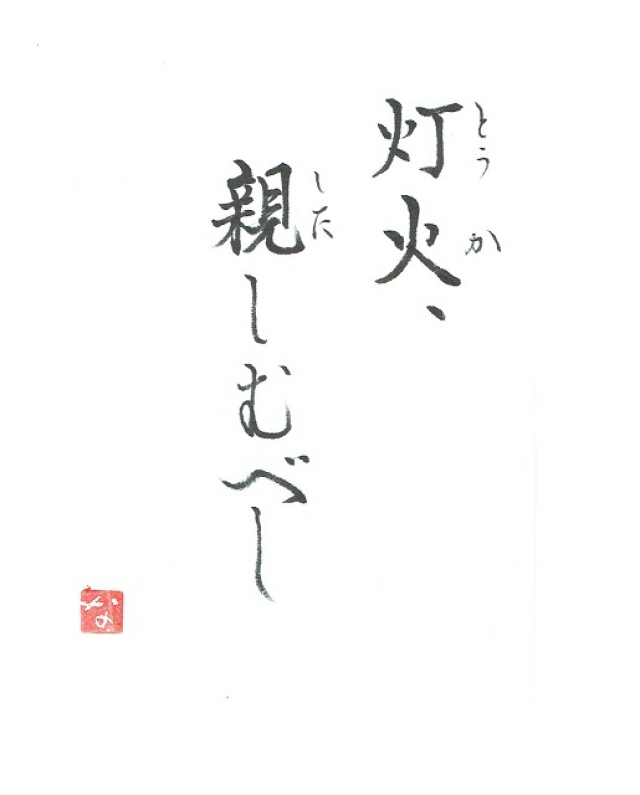 灯火、
とうか
親しむべし
した
な